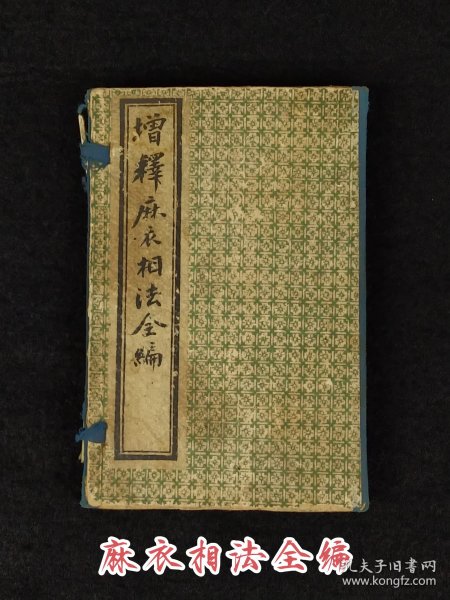 增釋麻衣相法全編
麻衣相法全编
孔夫子旧书网
www.kongfz.com